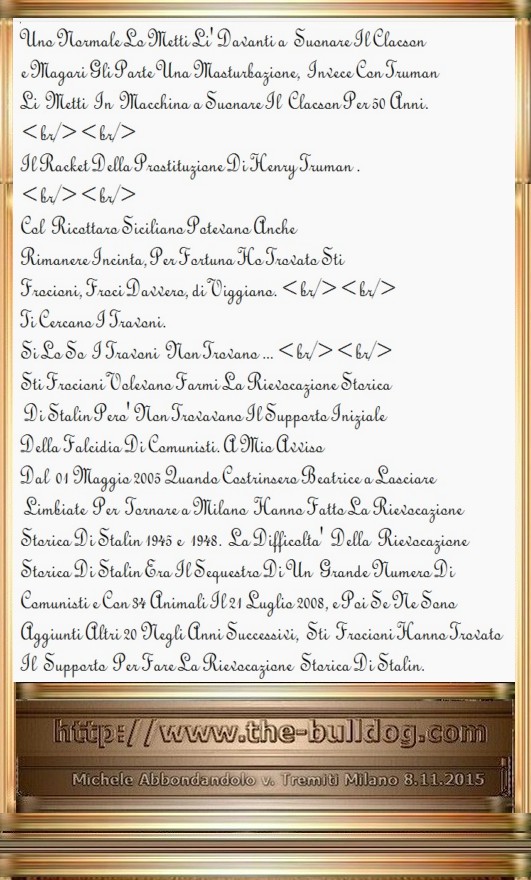 Uno Normale Lo Metti Li' Davanti a Suonare Il Clacson
e Magari Gli Parte Una Masturbazione, Invece Con Truman
Li Metti In Macchina a Suonare Il Clacson Per 50 Anni.
<br/><br/>
Il Racket Della Prostituzione Di Henry Truman .
<br/><br/>
Col Ricottaro Siciliano Potevano Anche
Rimanere Incinta, Per Fortuna Ho Trovato Sti
Frocioni, Froci Davvero, di Viggiano. <br/><br/>
Ti Cercano I Travoni.
Si Lo So I Travoni Non Trovano ... <br/><br/>
Sti Frocioni Volevano Farmi La Rievocazione Storica
Di Stalin Pero' Non Trovavano Il Supporto Iniziale
Della Falcidia Di Comunisti. A Mio Avviso
Dal 01 Maggio 2005 Quando Costrinsero Beatrice a Lasciare
Limbiate Per Tornare a Milano Hanno Fatto La Rievocazione
Storica Di Stalin 1945 e 1948. La Difficolta' Della Rievocazione
Storica Di Stalin Era Il Sequestro Di Un Grande Numero Di
Comunisti e Con 34 Animali Il 21 Luglio 2008, e Poi Se Ne Sono
Aggiunti Altri 20 Negli Anni Successivi, Sti Frocioni Hanno Trovato
Il Supporto Per Fare La Rievocazione Storica Di Stalin.
http://www.the-bulldog.com
Michele Abbondandolo v. Tremiti Milano 8.11.2015